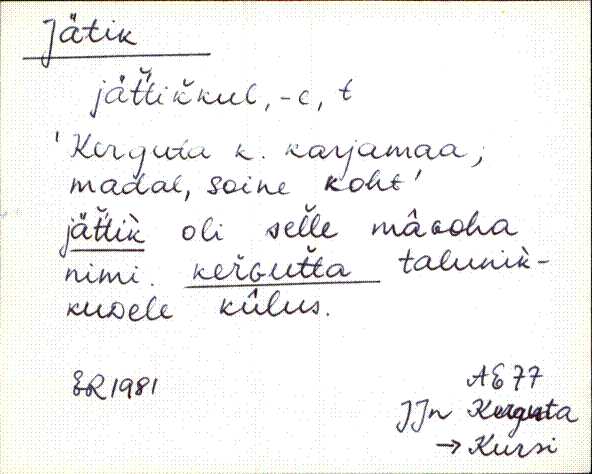 Jätik
jät̆t̆ik̆kul, -e, t
'Kerguta k. karjamaa;
madal, soine koht'
jät̆t̆ik̀ oli sel̆l̆e mâʙoha
nimi. ker̆ɢut̆t̆a talunik̀-
kuᴅele kûlus.
ER 1981
AE 77
JJn Kerguta
→ Kursi